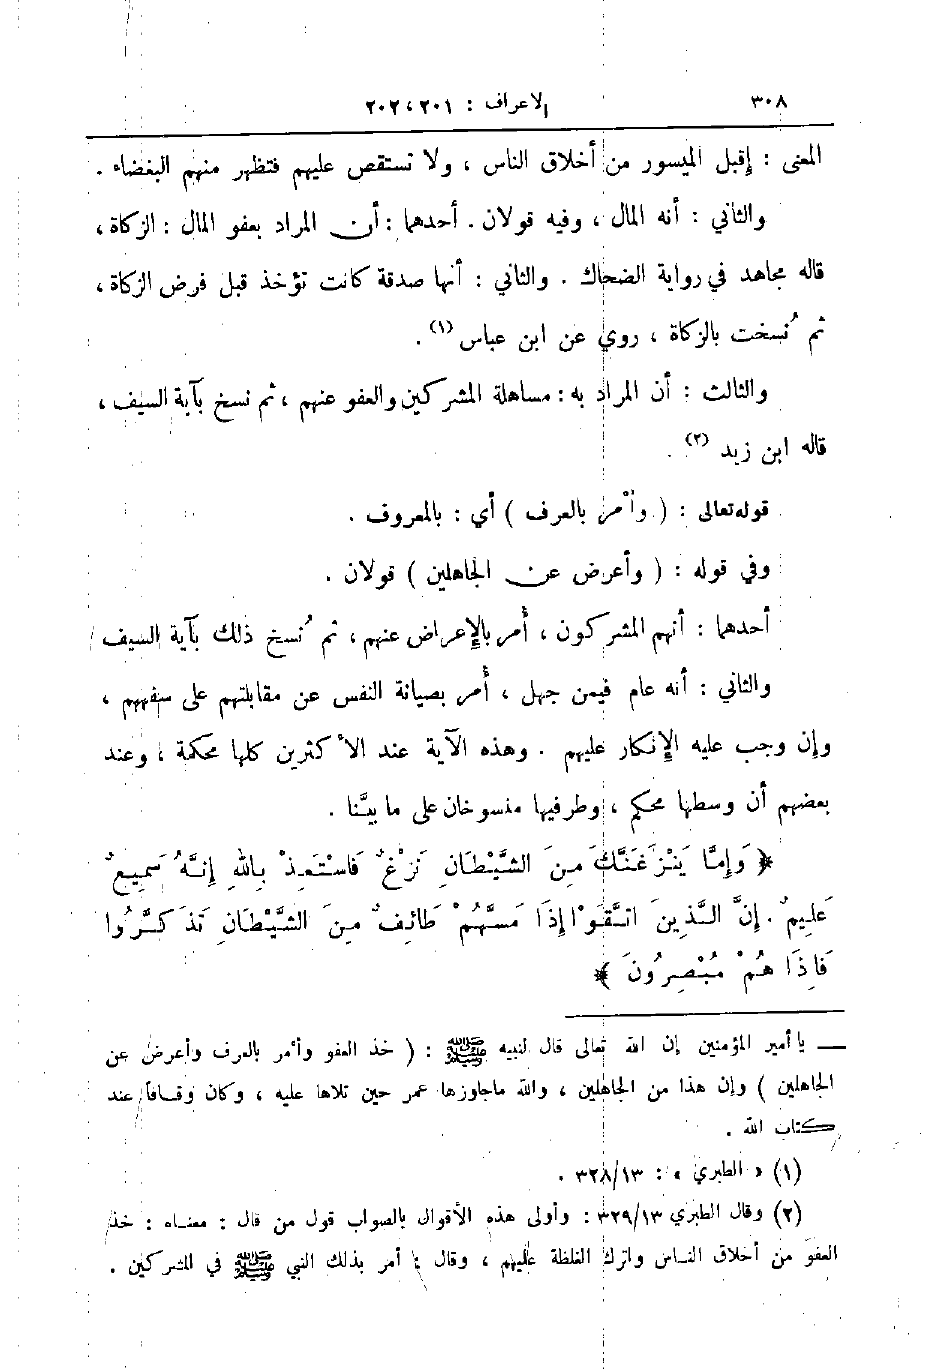 ٣٠٨ الاعراف : ٢٠١ ، ٢٠٢
المعنى : إقبل الميسور من أخلاق الناس ، ولا تستقص عليهم فتظهر منهم البغضاء .
والثاني : أنه المال ، وفيه قولان . أحدهما : أن المراد بعفو المال : الزكاة ،
قاله مجاهد في رواية الضحاك . والثاني : أنها صدقة كانت تؤخذ قبل فرض الزكاة ،
ثم نُسخت بالزكاة ، روي عن ابن عباس (١) .
والثالث : أن المراد به : مساهلة المشركين والعفو عنهم ، ثم نسخ بآية السيف ،
قاله ابن زيد (٢) .
قوله تعالى : ( وأْمر بالعرف ) أي : بالمعروف .
وفي قوله : ( وأعرض عن الجاهلين ) قولان .
أحدهما : أنهم المشركون ، أُمر بالإعراض عنهم ، ثم نُسخ ذلك بآية السيف
والثاني : أنه عام فيمن جهل ، أُمر بصيانة النفس عن مقابلتهم على سفههم ،
وإن وجب عليه الإنكار عليهم . وهذه الآية عند الأكثرين كلها محكمة ، وعند
بعضهم أن وسطها محكم ، وطرفيها منسوخان على ما بيَّنا .
﴿ وَإِمَّا يَنْزَغَنَّكَ مِنَ الشَّيْطَانِ نَزْغٌ فَاسْتَعِذْ بِاللهِ إِنَّهُ سَمِيعٌ
عَلِيمٌ . إِنَّ الَّذِينَ اتَّقَوْا إِذَا مَسَّهُمْ طَائِفٌ مِنَ الشَّيْطَانِ تَذَكَّرُوا
فَإِذَا هُمْ مُبْصِرُونَ ﴾
ــ يا أمير المؤمنين إن الله تعالى قال لنبيه ﷺ : ( خذ العفو وأمر بالعرف وأعرض عن
الجاهلين ) وإن هذا من الجاهلين ، والله ماجاوزها عمر حين تلاها عليه ، وكان وقافاً عند
كتاب الله .
(١) « الطبري » : ٣٢٨/١٣ .
(٢) وقال الطبري ٣٢٩/١٣ : وأولى هذه الأقوال بالصواب قول من قال : معناه : خذ
العفو من أخلاق الناس واترك الغلظة عليهم ، وقال : أمر بذلك النبي ﷺ في المشركين .